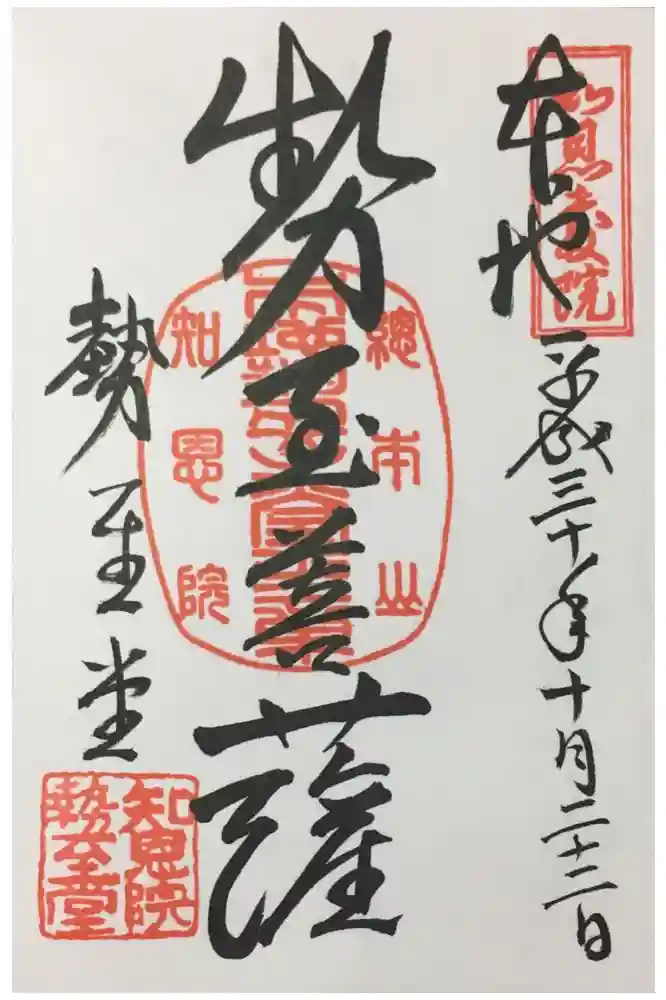 本地
平成三十年十月二十二日
勢至菩薩
總本山
知恩院
勢至堂
知恩院
勢至堂